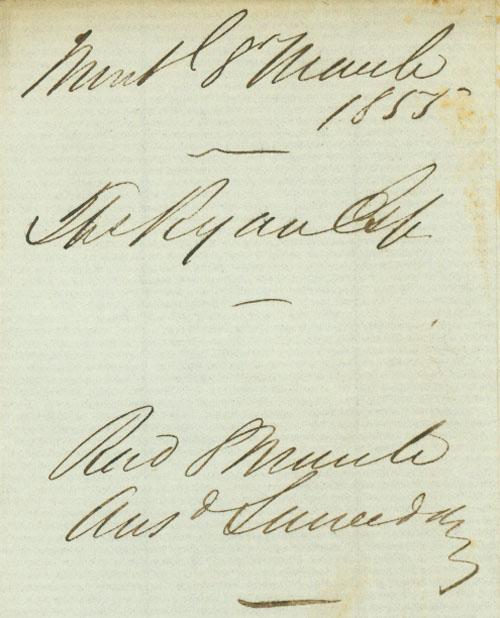 Montl 8 March
1855
Thos Ryan Esq
Recd 8 March
Ansd Sameday